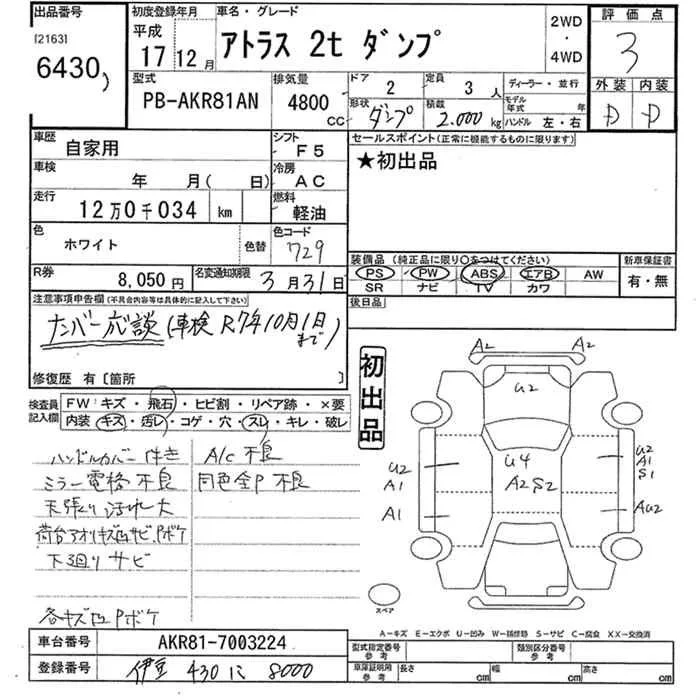 出品番号
[2163]
6430
初度登録年月
平成
17 12月
車名・グレード
アトラス 2t ダンプ
2WD
・
4WD
評価点
3
外装 内装
D D
型式
PB-AKR81AN
排気量
4800
CC
ドア
2
定員
3 人
形状
ダンプ
積載
2.000 kg
ディーラー・並行
モデル年式 年
ハンドル 左・右
車歴
自家用
シフト
F5
車検
年 月( 日)
冷房
AC
走行
12万0千034 km
燃料
軽油
色
ホワイト
色替
色コード
729
R券
8,050円
名変通知期限
3月31日
セールスポイント(正常に機能するものに限ります)
★初出品
装備品 (純正品に限り○をつけてください)
PS PW ABS エアB AW
SR ナビ TV カワ
新車保証書
有・無
後日品
注意事項申告欄(不具合内容等は具体的に記入して下さい)
ナンバー応談(車検R7年10月1日まで)
修復歴 有〔箇所 〕
検査員記入欄
FW:キズ・飛石・ヒビ割・リペア跡・×要
内装:キズ・汚レ・コゲ・穴・スレ・キレ・破レ
初出品
ハンドルカバー付き A/C不良
ミラー電格不良 同色全P不良
天張り汚れ大
荷台アオリキズ凹サビPボケ
下廻りサビ
各キズ凹Pボケ
A2 A2
U2
U2
A1
A1
U4
A2S2
U2
A1
S1
AU2
スペア
A-キズ E-エクボ U-凹み W-補修跡 S-サビ C-腐食 XX-交換済
車台番号
AKR81-7003224
登録番号
伊豆 430 に 8000
型式指定番号
参考
類別区分番号
参考
車庫証明用
参考
長さ cm
幅 cm
高さ cm